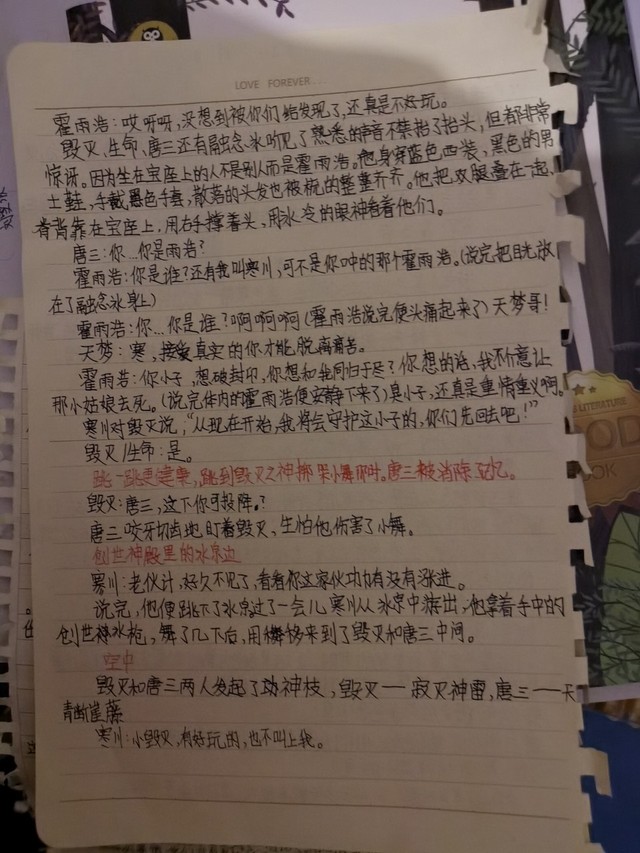 LOVE FOREVER...
霍雨浩：哎呀呀，没想到被你们给发现了，还真是不好玩。
毁灭、生命、唐三还有融念冰听见了熟悉的声音不禁抬了抬头，但都非常
惊讶。因为坐在宝座上的人不是别人而是霍雨浩。他身穿蓝色西装，黑色的男
士鞋，手戴墨色手套，散落的头发也被梳的整整齐齐。他把双腿叠在一起，
背靠在宝座上，用右手撑着头，用冰冷的眼神看着他们。
唐三：你…你是雨浩？
霍雨浩：你是谁？还有我叫寒川，可不是你口中的那个霍雨浩。（说完把目光放
在了融念冰身上）
霍雨浩：你…你是谁？啊啊啊（霍雨浩说完便头痛起来了）天梦哥！
天梦：寒，接受真实的你才能脱离痛苦。
霍雨浩：你小子，想破封印，你想和我同归于尽？你想的话，我不介意让
那小姑娘去死。（说完体内的霍雨浩便安静下来了）臭小子，还真是重情重义啊。
寒川对毁灭说；“从现在开始，我将会守护这小子的，你们先回去吧！”
毁灭/生命：是。
跳一跳更健康，跳到毁灭之神绑架小舞那时。唐三被消除记忆。
毁灭：唐三，这下你可投降？
唐三咬牙切齿地盯着毁灭，生怕他伤害了小舞。
创世神殿里的冰泉边
寒川：老伙计，好久不见了，看看你这家伙功力有没有涨进。
说完，他便跳下了冰泉过了一会儿寒川从冰泉中游出，他拿着手中的
创世神冰枪，舞了几下后，用瞬移来到了毁灭和唐三中间。
空中
毁灭和唐三两人发起了动神技，毁灭——寂灭神雷，唐三——天
青
寒川：小毁灭，有好玩的，也不叫上我。
LITERATURE